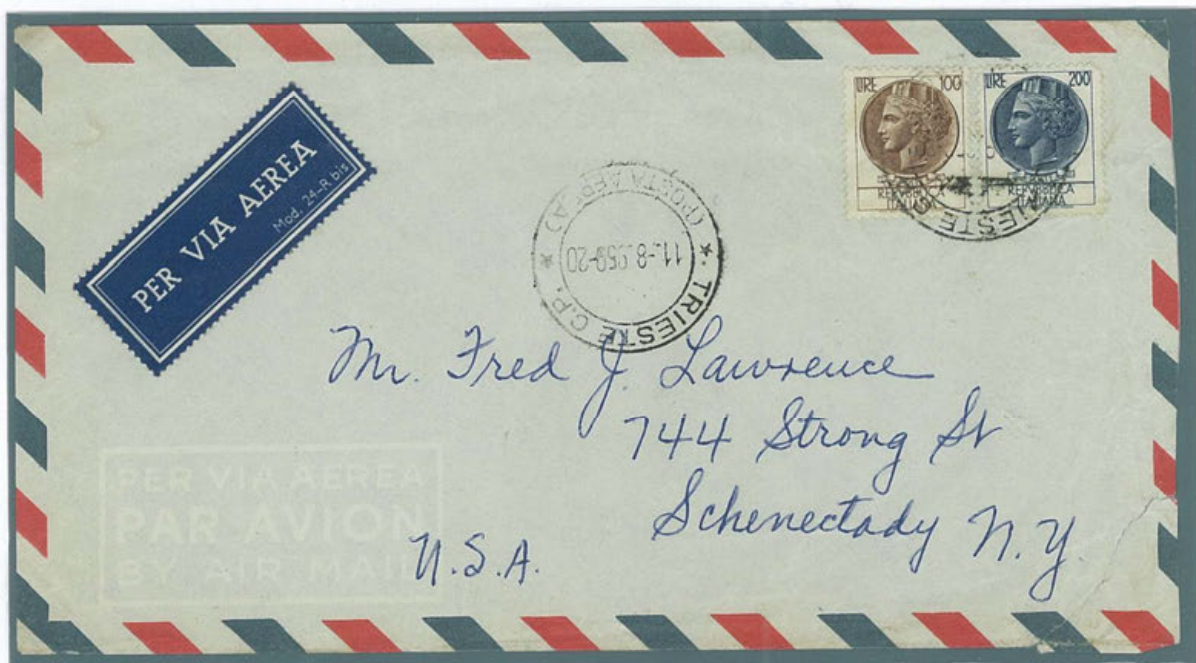 PER VIA AEREA
Mod. 24-R bis
LIRE 100
REPUBBLICA
ITALIANA
LIRE 200
REPUBBLICA
ITALIANA
TRIESTE
(POSTA AEREA)
11.-8.959-20
* TRIESTE C.P. *
Mr. Fred J. Lawrence
744 Strong St
Schenectady N.Y.
U.S.A.
PER VIA AEREA
PAR AVION
BY AIR MAIL